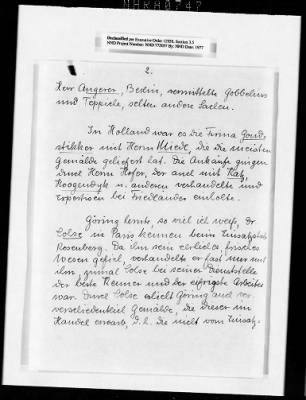 NHRH80747
Declassified per Executive Order 12958, Section 3.5
NND Project Number: NND 775057 By: NND Date: 1977
2.
Herr Angerer, Berlin, vermittelte Gobbelins
und Teppiche, selten andere Sachen.
In Holland war es die Firma Goud-
stikker mit Herrn Miedl, die die meisten
Gemälde geliefert hat. Die Ankäufe gingen
durch Herrn Hofer, der auch mit Katz,
Hoogendyk u. anderen verhandelte und
Expertisen bei Friedländer einholte.
Göring lernte, so viel ich weiss, Dr
Lohse in Paris kennen beim Einsatzstab
Rosenberg. Da ihm sein ehrliches, frisches
Wesen gefiel, verhandelte er fast nur mit
ihm, zumal Lohse bei seiner Dienststelle
der beste Kenner und der eifrigste Arbeiter
war. Durch Lohse erhielt Göring auch ver-
verschiedentlich Gemälde, die dieser im
Handel erwarb, d.h. die nicht vom Einsatz-